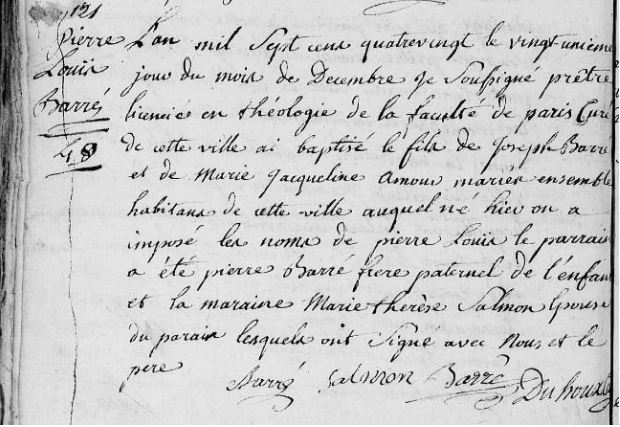 121
Pierre
Louis
Barré
48
L'an mil Sept cens quatrevingt le vingt unieme
jour du mois de Decembre je Soussigné prêtre
licencié en théologie de la faculté de paris Curé
de cette ville ai baptisé le fils de Joseph Barré
et de Marie Jacqueline Amour mariés ensemble
habitans de cette ville auquel né hier on a
imposé les noms de pierre Louis le parrain
a été pierre Barré frere paternel de l'enfant
et la maraine Marie therèse Salmon Epouse
du parain lesquels ont Signé avec Nous et le
pere
Barré Salmon Barré Duhoux